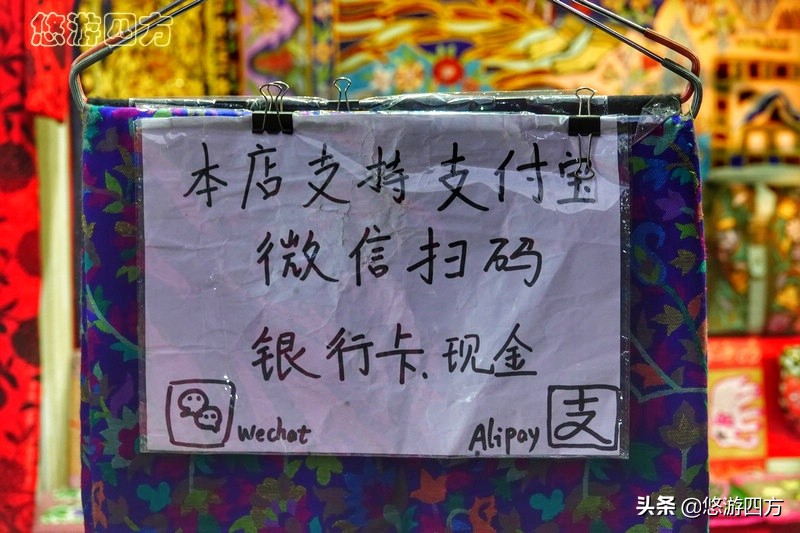 悠游四方
本店支持支付宝
微信扫码
银行卡、现金
wechat
Alipay 支
头条 @悠游四方